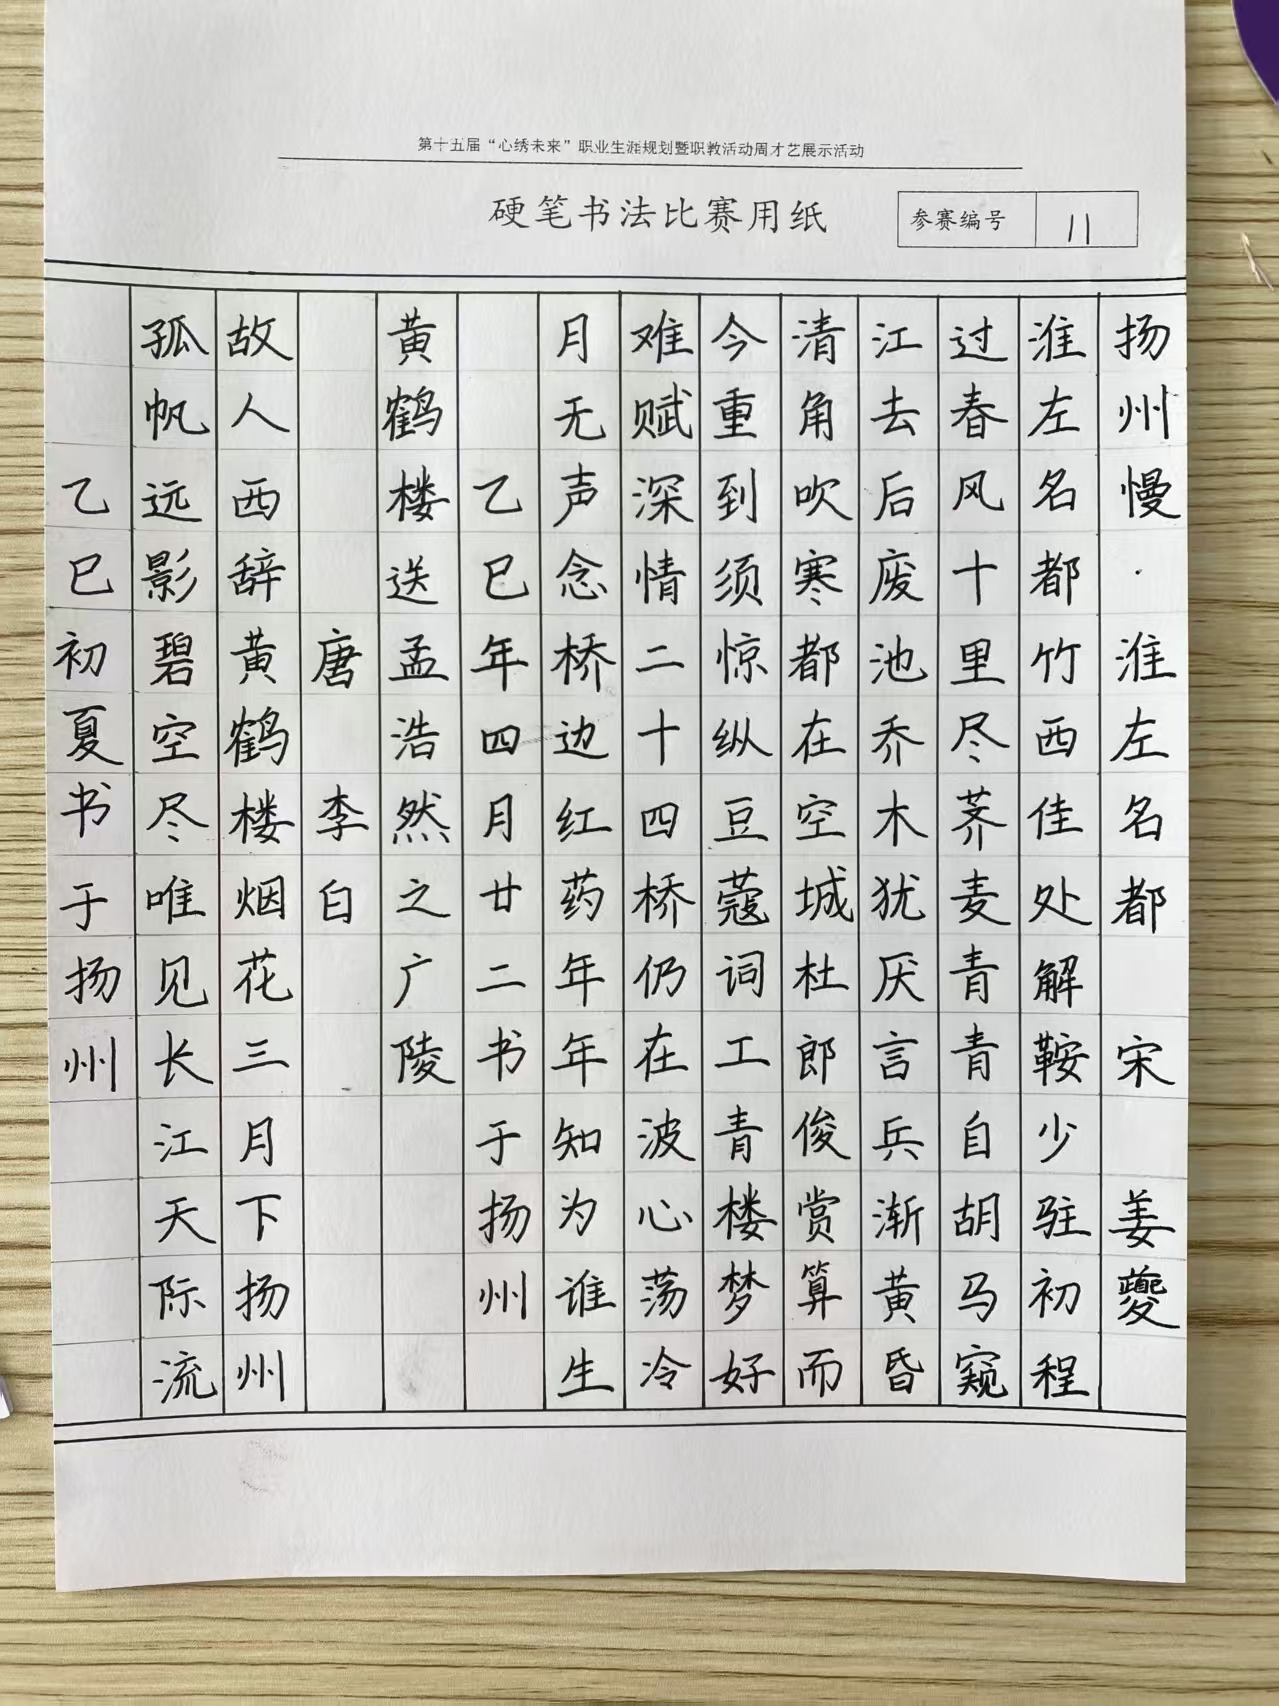 第十五届“心绣未来”职业生涯规划暨职教活动周才艺展示活动
硬笔书法比赛用纸
参赛编号 11
扬州慢·淮左名都 宋 姜夔
淮左名都竹西佳处解鞍少驻初程
过春风十里尽荠麦青青自胡马窥
江去后废池乔木犹厌言兵渐黄昏
清角吹寒都在空城杜郎俊赏算而
今重到须惊纵豆蔻词工青楼梦好
难赋深情二十四桥仍在波心荡冷
月无声念桥边红药年年知为谁生
乙巳年四月廿二书于扬州
黄鹤楼送孟浩然之广陵
唐 李白
故人西辞黄鹤楼烟花三月下扬州
孤帆远影碧空尽唯见长江天际流
乙巳初夏书于扬州